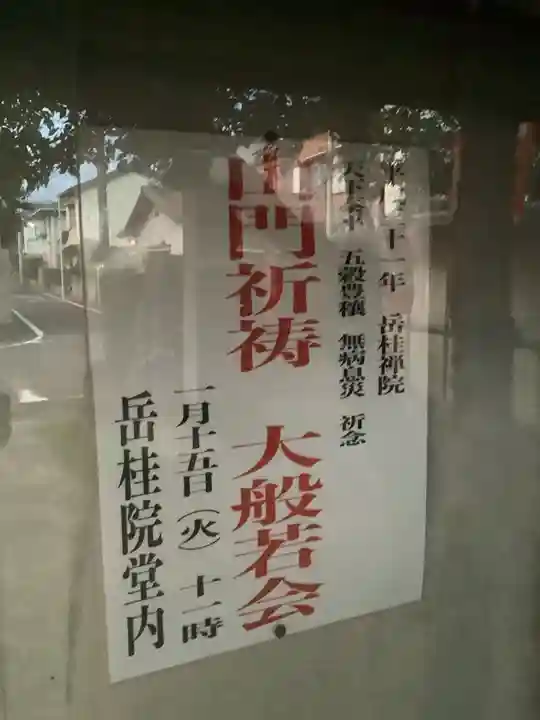 平成三十一年 岳桂禅院
天下泰平 五穀豊穣 無病息災 祈念
山門祈祷 大般若会
一月十五日（火） 十一時
岳桂院堂内